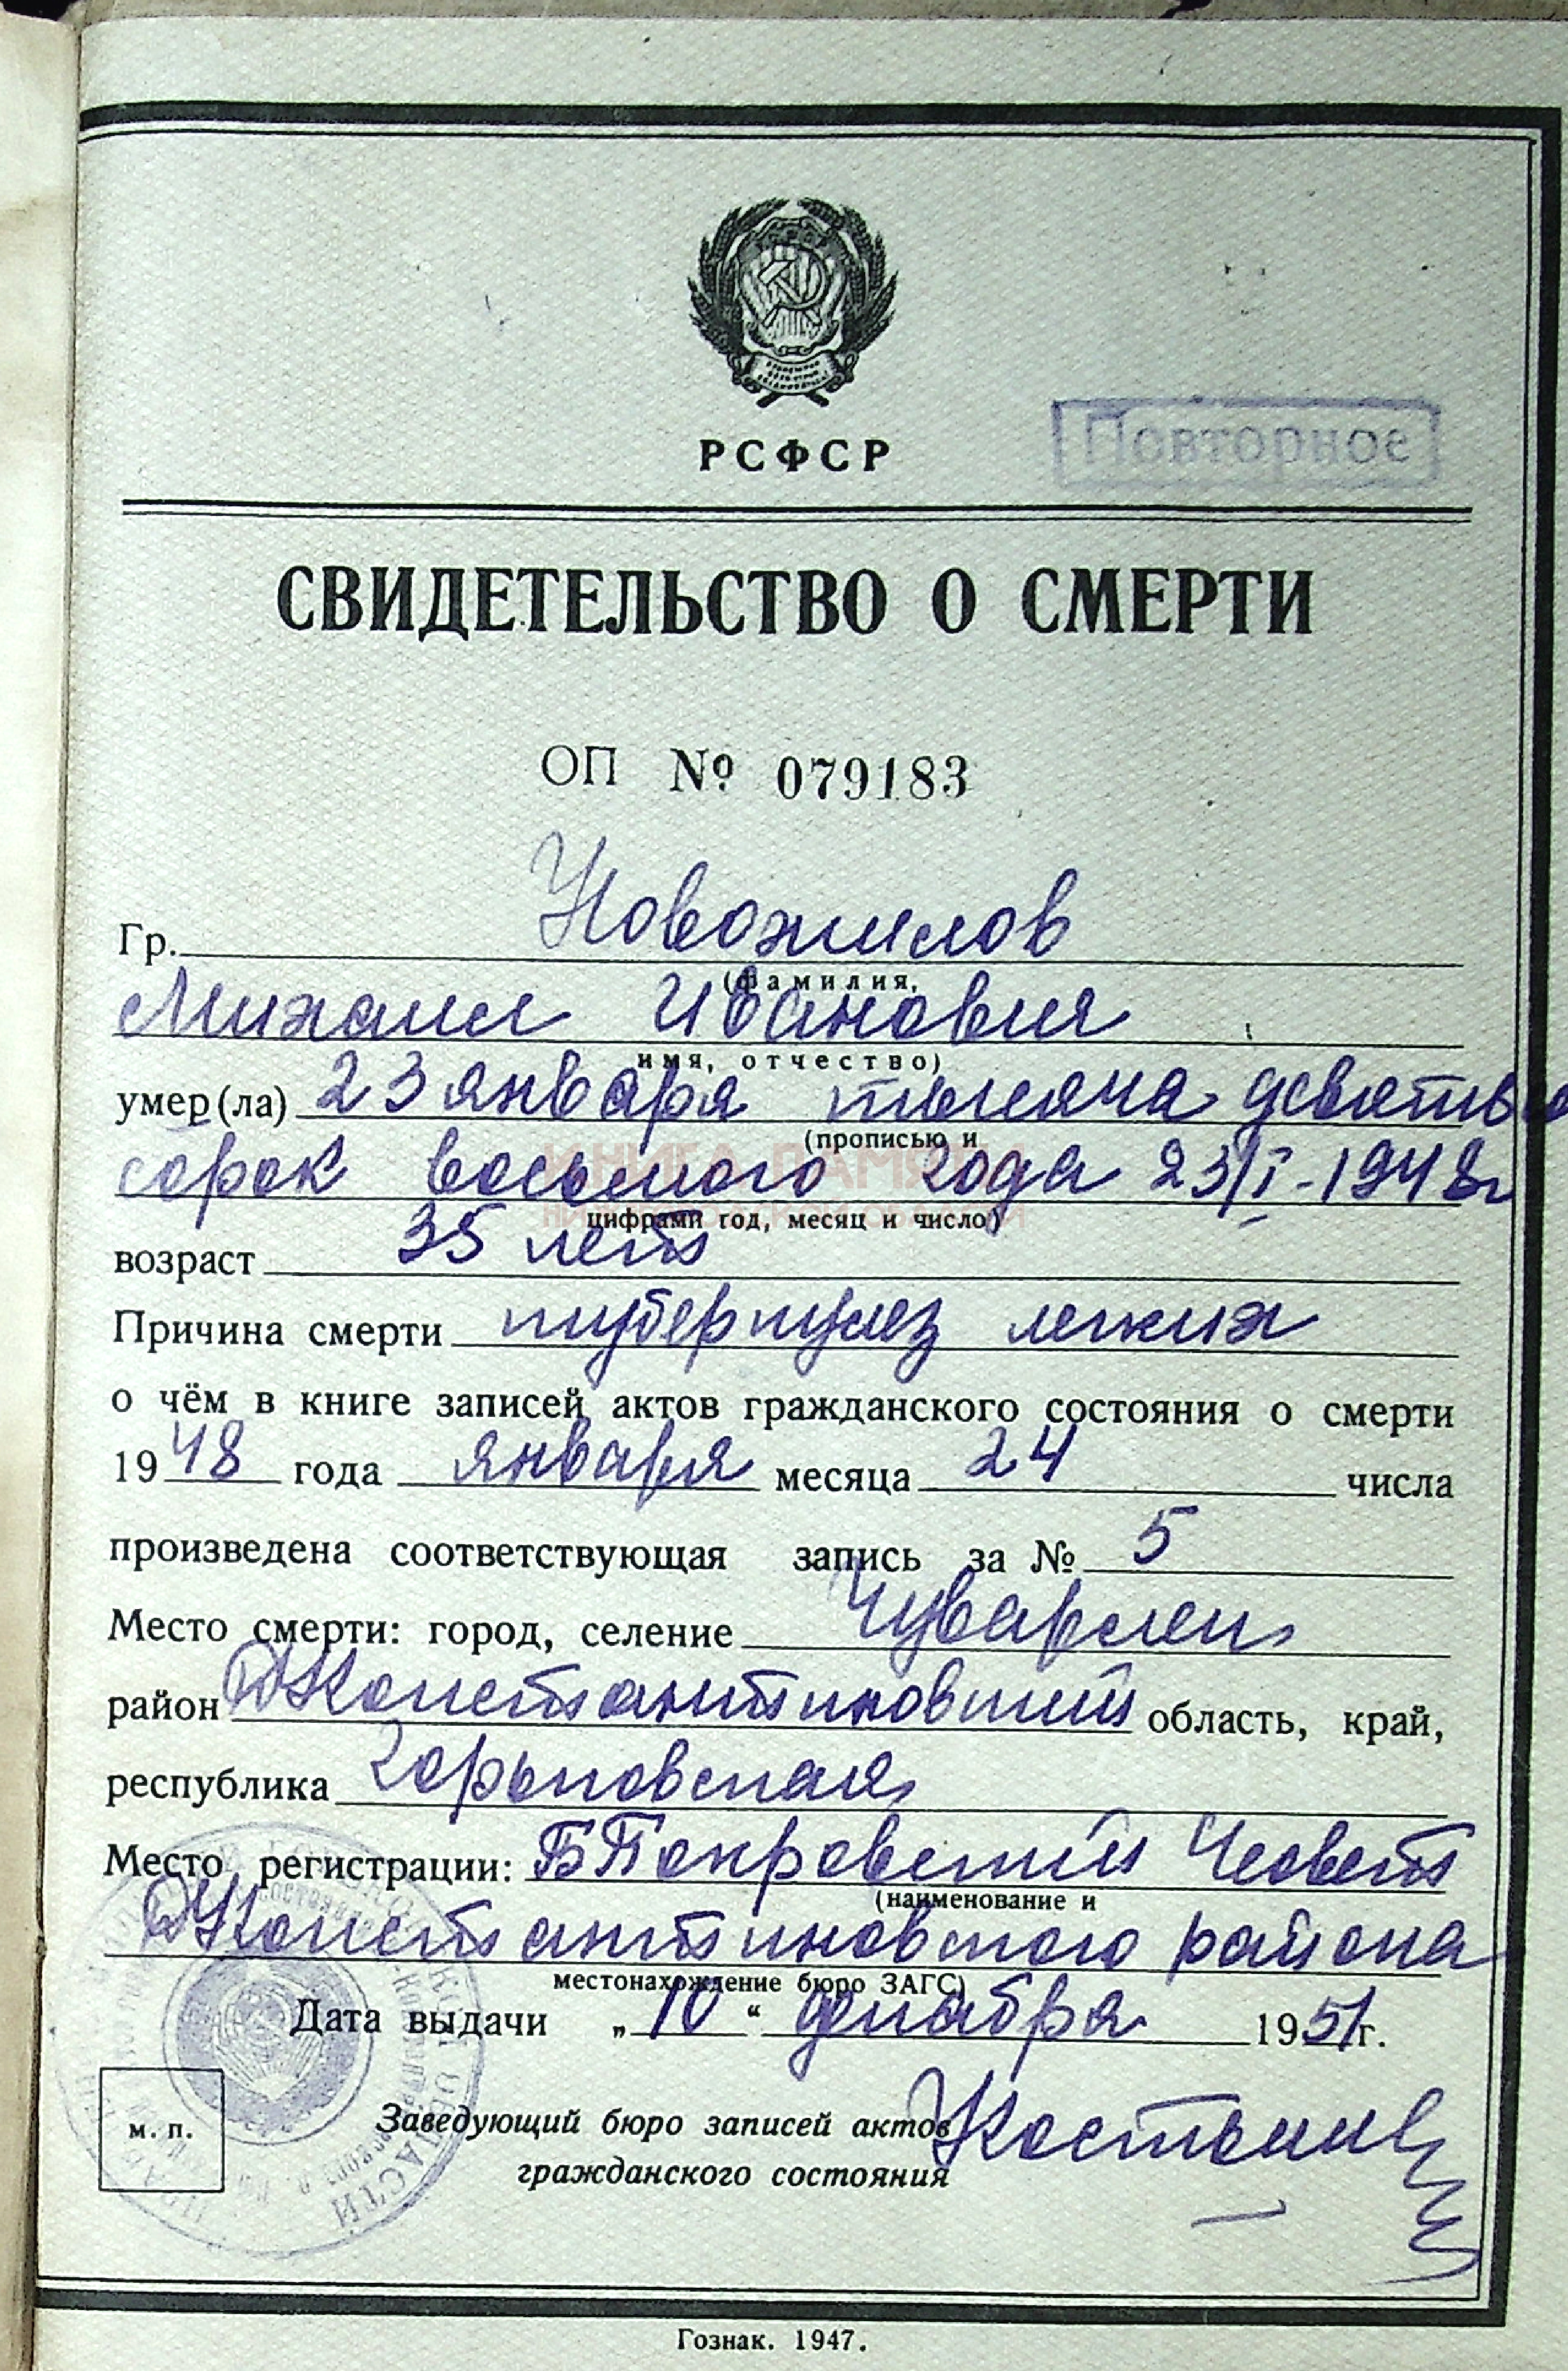 РСФСР
Повторное
СВИДЕТЕЛЬСТВО О СМЕРТИ
ОП № 079183
Гр. Новожилов
(фамилия,
Михаил Иванович
имя, отчество)
умер(ла) 23 января тысяча девятьсо
(прописью и
сорок восьмого года 23/I-1948г
КНИГА ПАМЯТИ
НИЖЕГОРОДСКОЙ ОБЛАСТИ
цифрами год, месяц и число)
возраст 35 лет
Причина смерти туберкулез легких
о чём в книге записей актов гражданского состояния о смерти
1948 года января месяца 24 числа
произведена соответствующая запись за № 5
Место смерти: город, селение Чуварлеи
район ДКонстантиновский область, край,
республика Горьковская
Место регистрации: БПокровский
(наименование и
ДКонстантиновского района
местонахождение бюро ЗАГС)
Дата выдачи „10“ декабря 1951г.
м. п.
Заведующий бюро записей актов
гражданского состояния
Гознак. 1947.